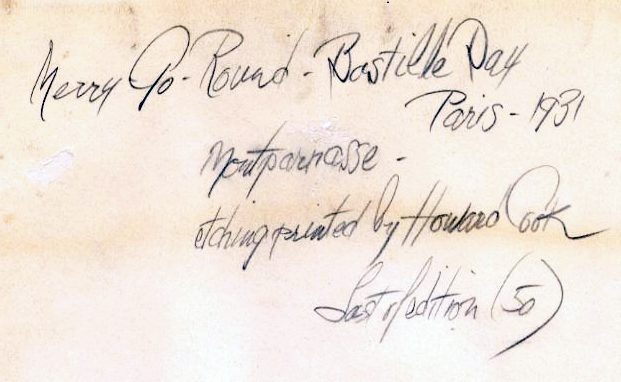 Merry Go-Round - Bastille Day
Paris - 1931
Montparnasse -
etching printed by Howard Cook
Last of edition (50)